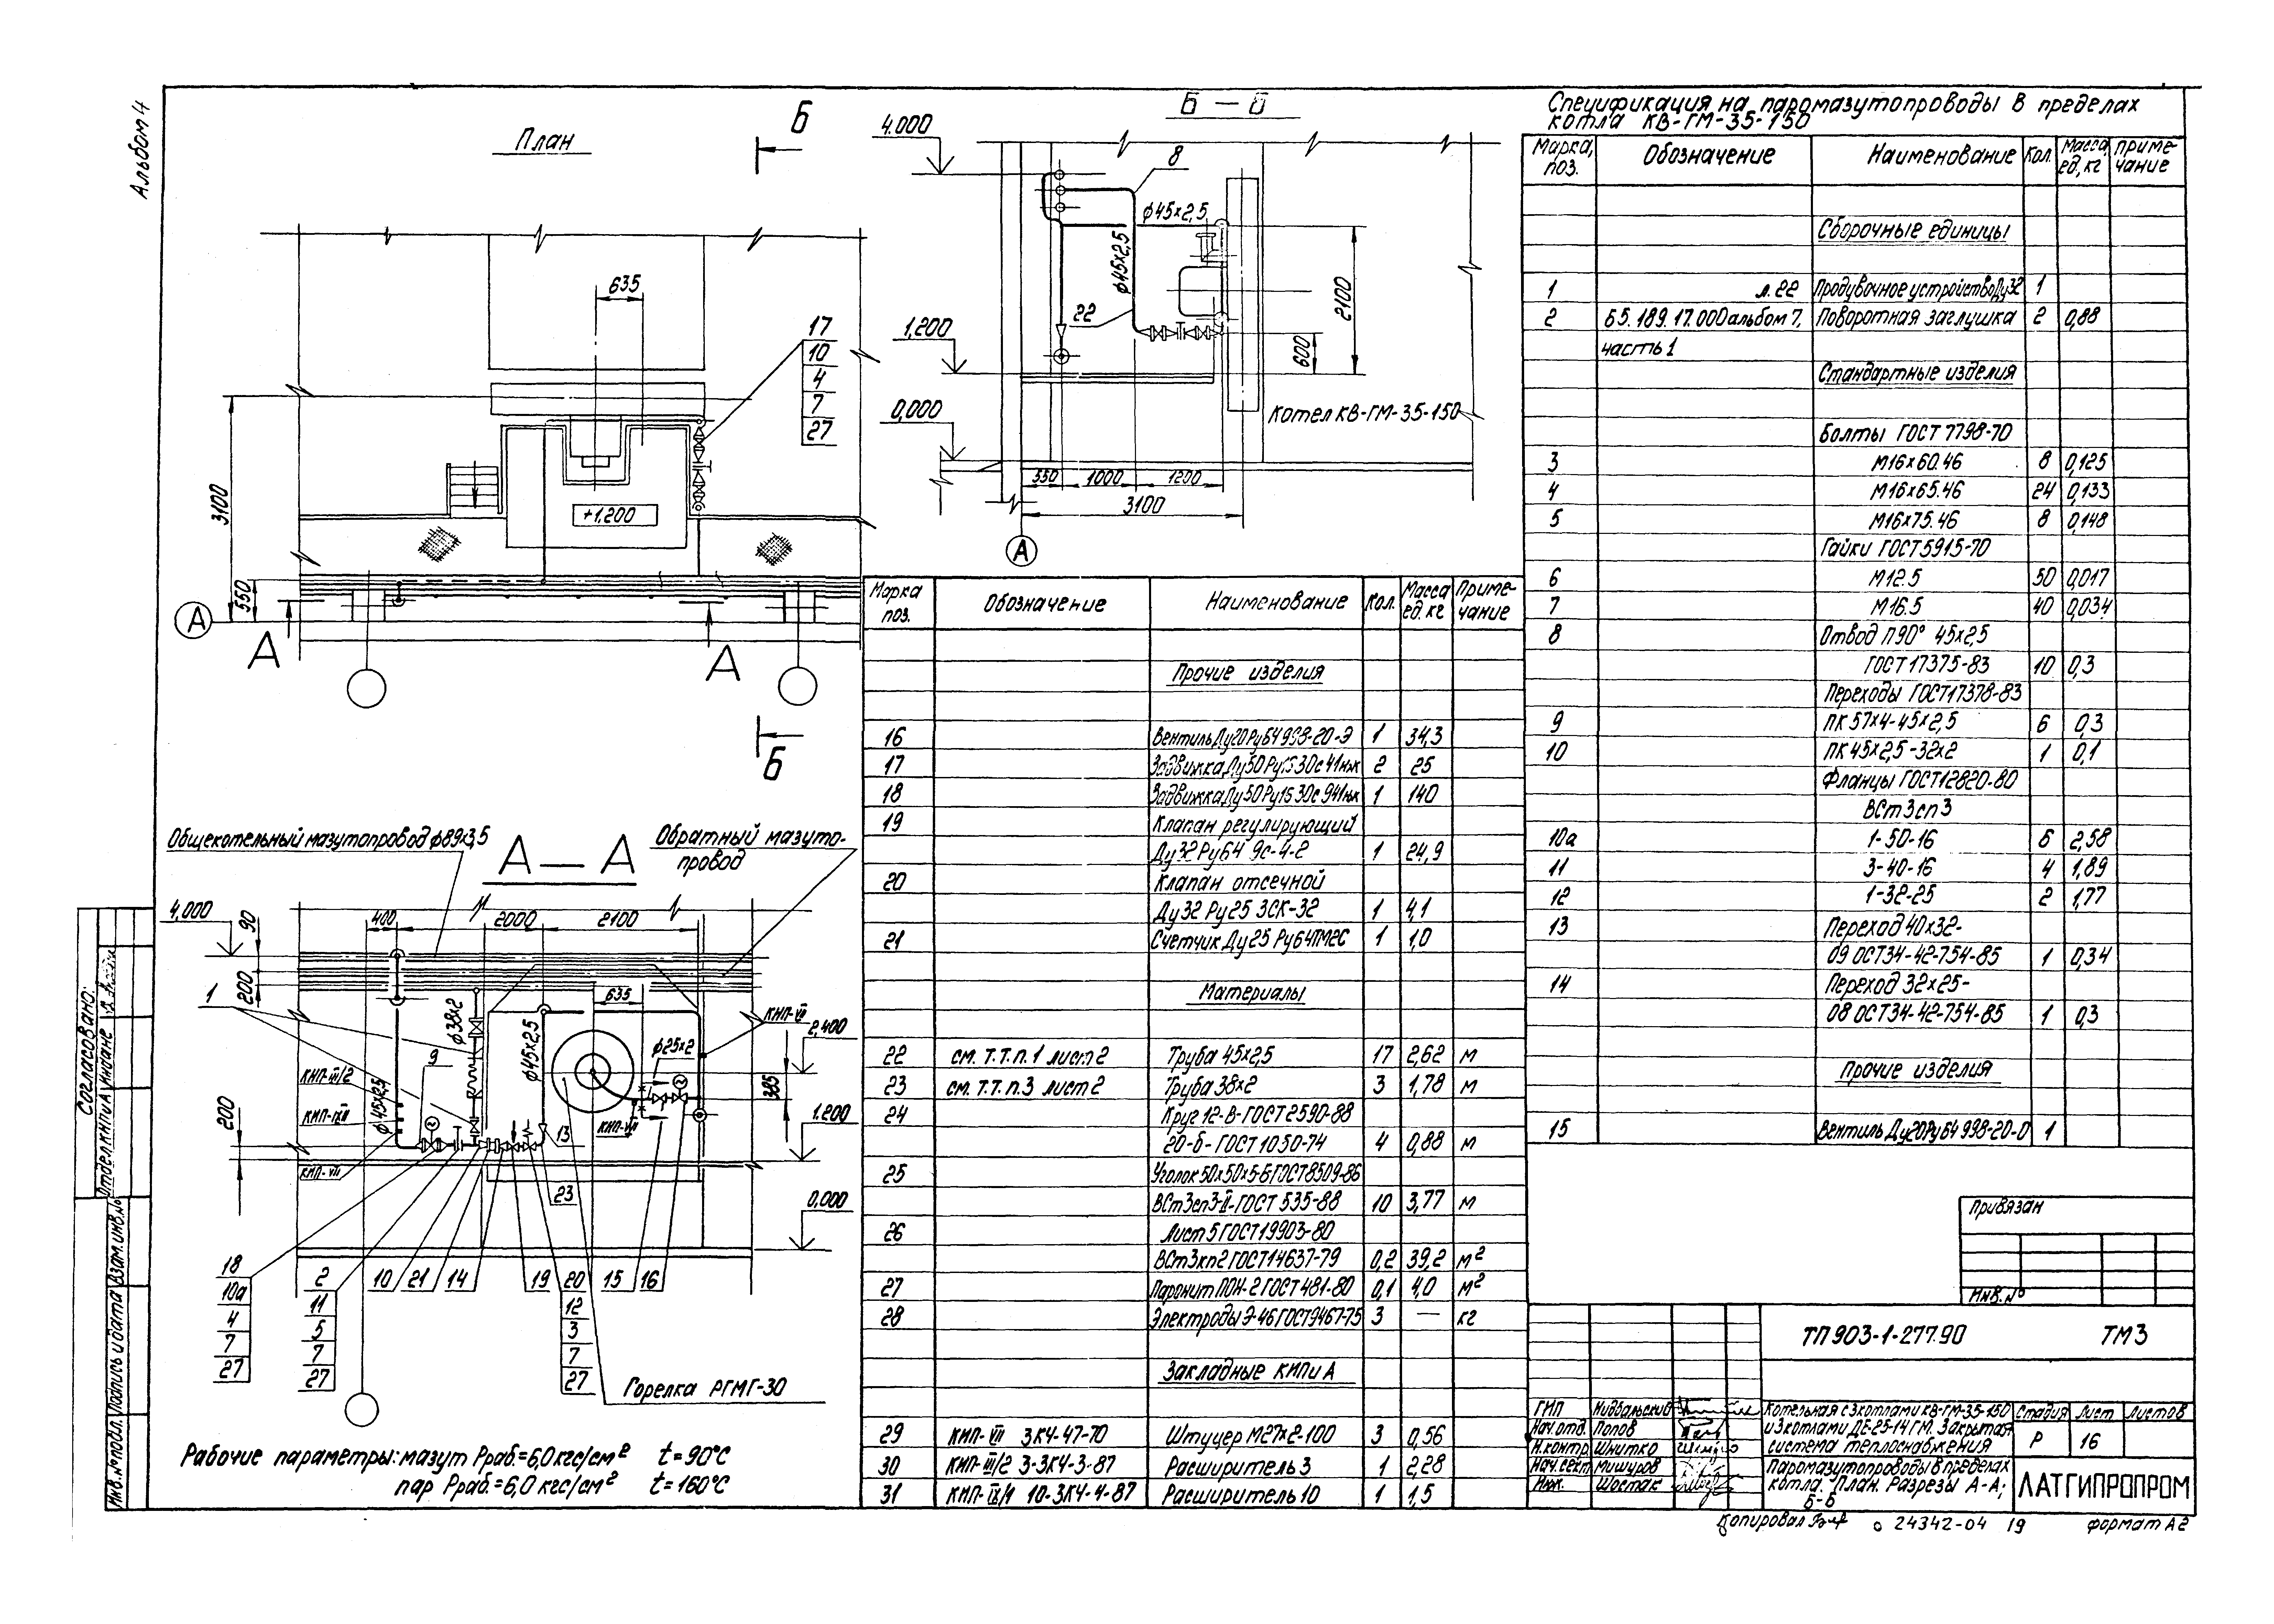 Альбом 4
План
Б
635
17
10
4
7
27
3100
550
+1,200
А
А
А
Б
Б — Б
4.000
8
ф45х2,5
ф45х2,5
22
2100
600
1,200
0,000
Котел КВ-ГМ-35-150
550
1000
1200
3100
А
Общекотельный мазутопровод ф89х3,5
Обратный мазуто-
провод
А — А
4,000
90
200
400
2000
2100
635
1
ф38х2
ф45х2,5
ф25х2
2,400
385
9
КИП-III/2
ф45х2,5
КИП-VII
200
13
23
1.200
0,000
18
10а
4
7
27
2
11
5
7
27
10
21
14
19
20
12
3
7
27
15
16
Горелка РГМГ-30
Рабочие параметры: мазут Рраб.=6,0 кгс/см² t=90°С
пар Рраб.=6,0 кгс/см² t=160°С
Марка поз. Обозначение Наименование Кол. Масса ед. кг Приме-чание
Прочие изделия
16 Вентиль Ду20 Ру64 998-20-Э 1 34,3
17 Задвижка Ду50 Ру15 30с41нж 2 25
18 Задвижка Ду50 Ру15 30с941нж 1 140
19 Клапан регулирующий
Ду32 Ру64 9с-4-2 1 24,9
20 Клапан отсечной
Ду32 Ру25 ЗСК-32 1 4,1
21 Счетчик Ду25 Ру64 1 1,0
Материалы
22 см. Т.Т. п.1 лист 2 Труба 45х2,5 17 2,62 м
23 см. Т.Т. п.3 лист 2 Труба 38х2 3 1,78 м
24 Круг 12-В-ГОСТ 2590-88
20-б-ГОСТ 1050-74 4 0,88 м
25 Уголок 50х50х5-Б ГОСТ 8509-86
ВСт3сп3-II-ГОСТ 535-88 10 3,77 м
26 Лист 5 ГОСТ 19903-80
ВСт3кп2 ГОСТ 14637-79 0,2 39,2 м²
27 Паронит ПОН-2 ГОСТ 481-80 0,1 4,0 м²
28 Электроды Э-46 ГОСТ 9467-75 3 — кг
Закладные КИПиА
29 КИП-VII 3К4-47-70 Штуцер М27х2-100 3 0,56
30 КИП-III/2 3-3К4-3-87 Расширитель 3 1 2,28
31 10-3К4-4-87 Расширитель 10 1 1,5
Спецификация на паромазутопроводы в пределах
котла КВ-ГМ-35-150
Марка, поз. Обозначение Наименование Кол. Масса ед, кг Приме-чание
Сборочные единицы
1 л.22 Продувочное устройство Ду32 1
2 65.189.17.000 альбом 7, Поворотная заглушка 2 0,88
часть 1
Стандартные изделия
Болты ГОСТ 7798-70
3 М16х60.46 8 0,125
4 М16х65.46 24 0,133
5 М16х75.46 8 0,148
Гайки ГОСТ 5915-70
6 М12.5 50 0,017
7 М16.5 40 0,034
8 Отвод П90° 45х2,5
ГОСТ 17375-83 10 0,3
Переходы ГОСТ 17378-83
9 ПК 57х4-45х2,5 6 0,3
10 ПК 45х2,5-32х2 1 0,1
Фланцы ГОСТ 12820-80
ВСт3сп3
10а 1-50-16 6 2,58
11 3-40-16 4 1,89
12 1-32-25 2 1,77
13 Переход 40х32-
09 ОСТ34-42-754-85 1 0,34
14 Переход 32х25-
08 ОСТ34-42-754-85 1 0,3
Прочие изделия
15 Вентиль Ду20 Ру64 998-20-0 1
Привязан
Инв. №
ТП 903-1-277.90 ТМ3
ГИП
Нач.отд. Попов
Н.контр. Шнитко
Нач.сект. Мишуров
Инж. Шостак
Котельная с 3 котлами КВ-ГМ-35-150
и 3 котлами ДЕ-25-14ГМ. Закрытая
система теплоснабжения
Паромазутопроводы в пределах
котла. План. Разрезы А-А;
Б-Б
Стадия Лист Листов
Р 16
ЛАТГИПРОПРОМ
Копировал
24342-04 19
формат А2
Согласовано:
Отдел КИПиА
Взам.инв.№
Подпись и дата
Инв.№ подл.